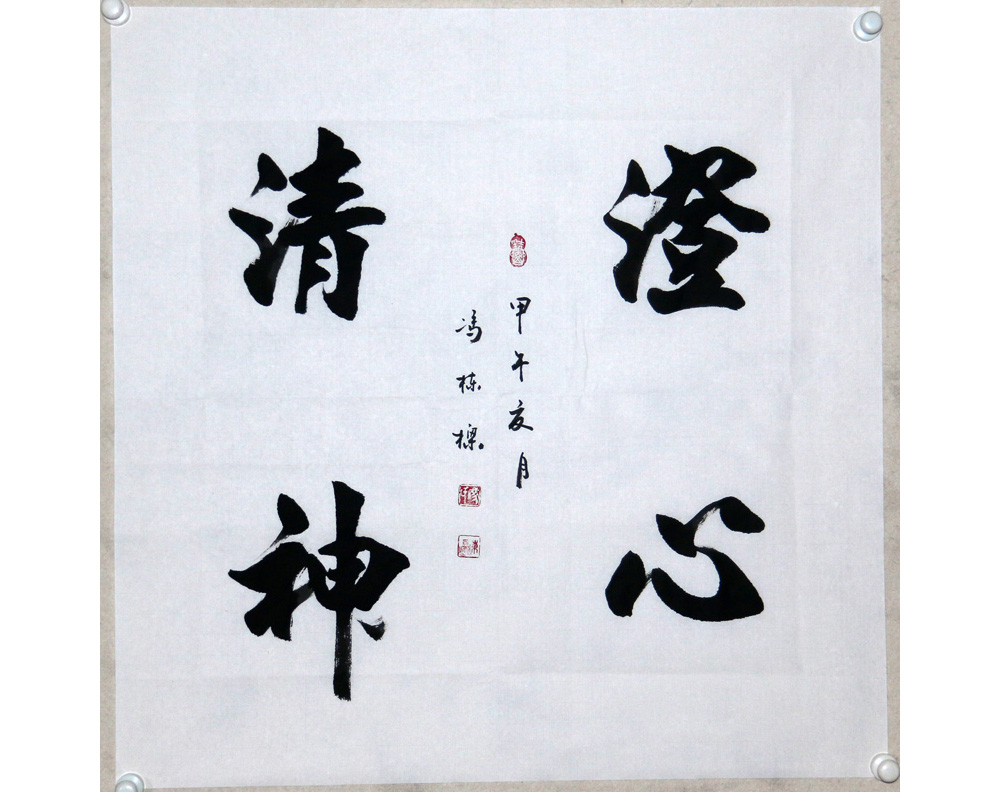 澄心
甲午夏月
冯栋樑
清神